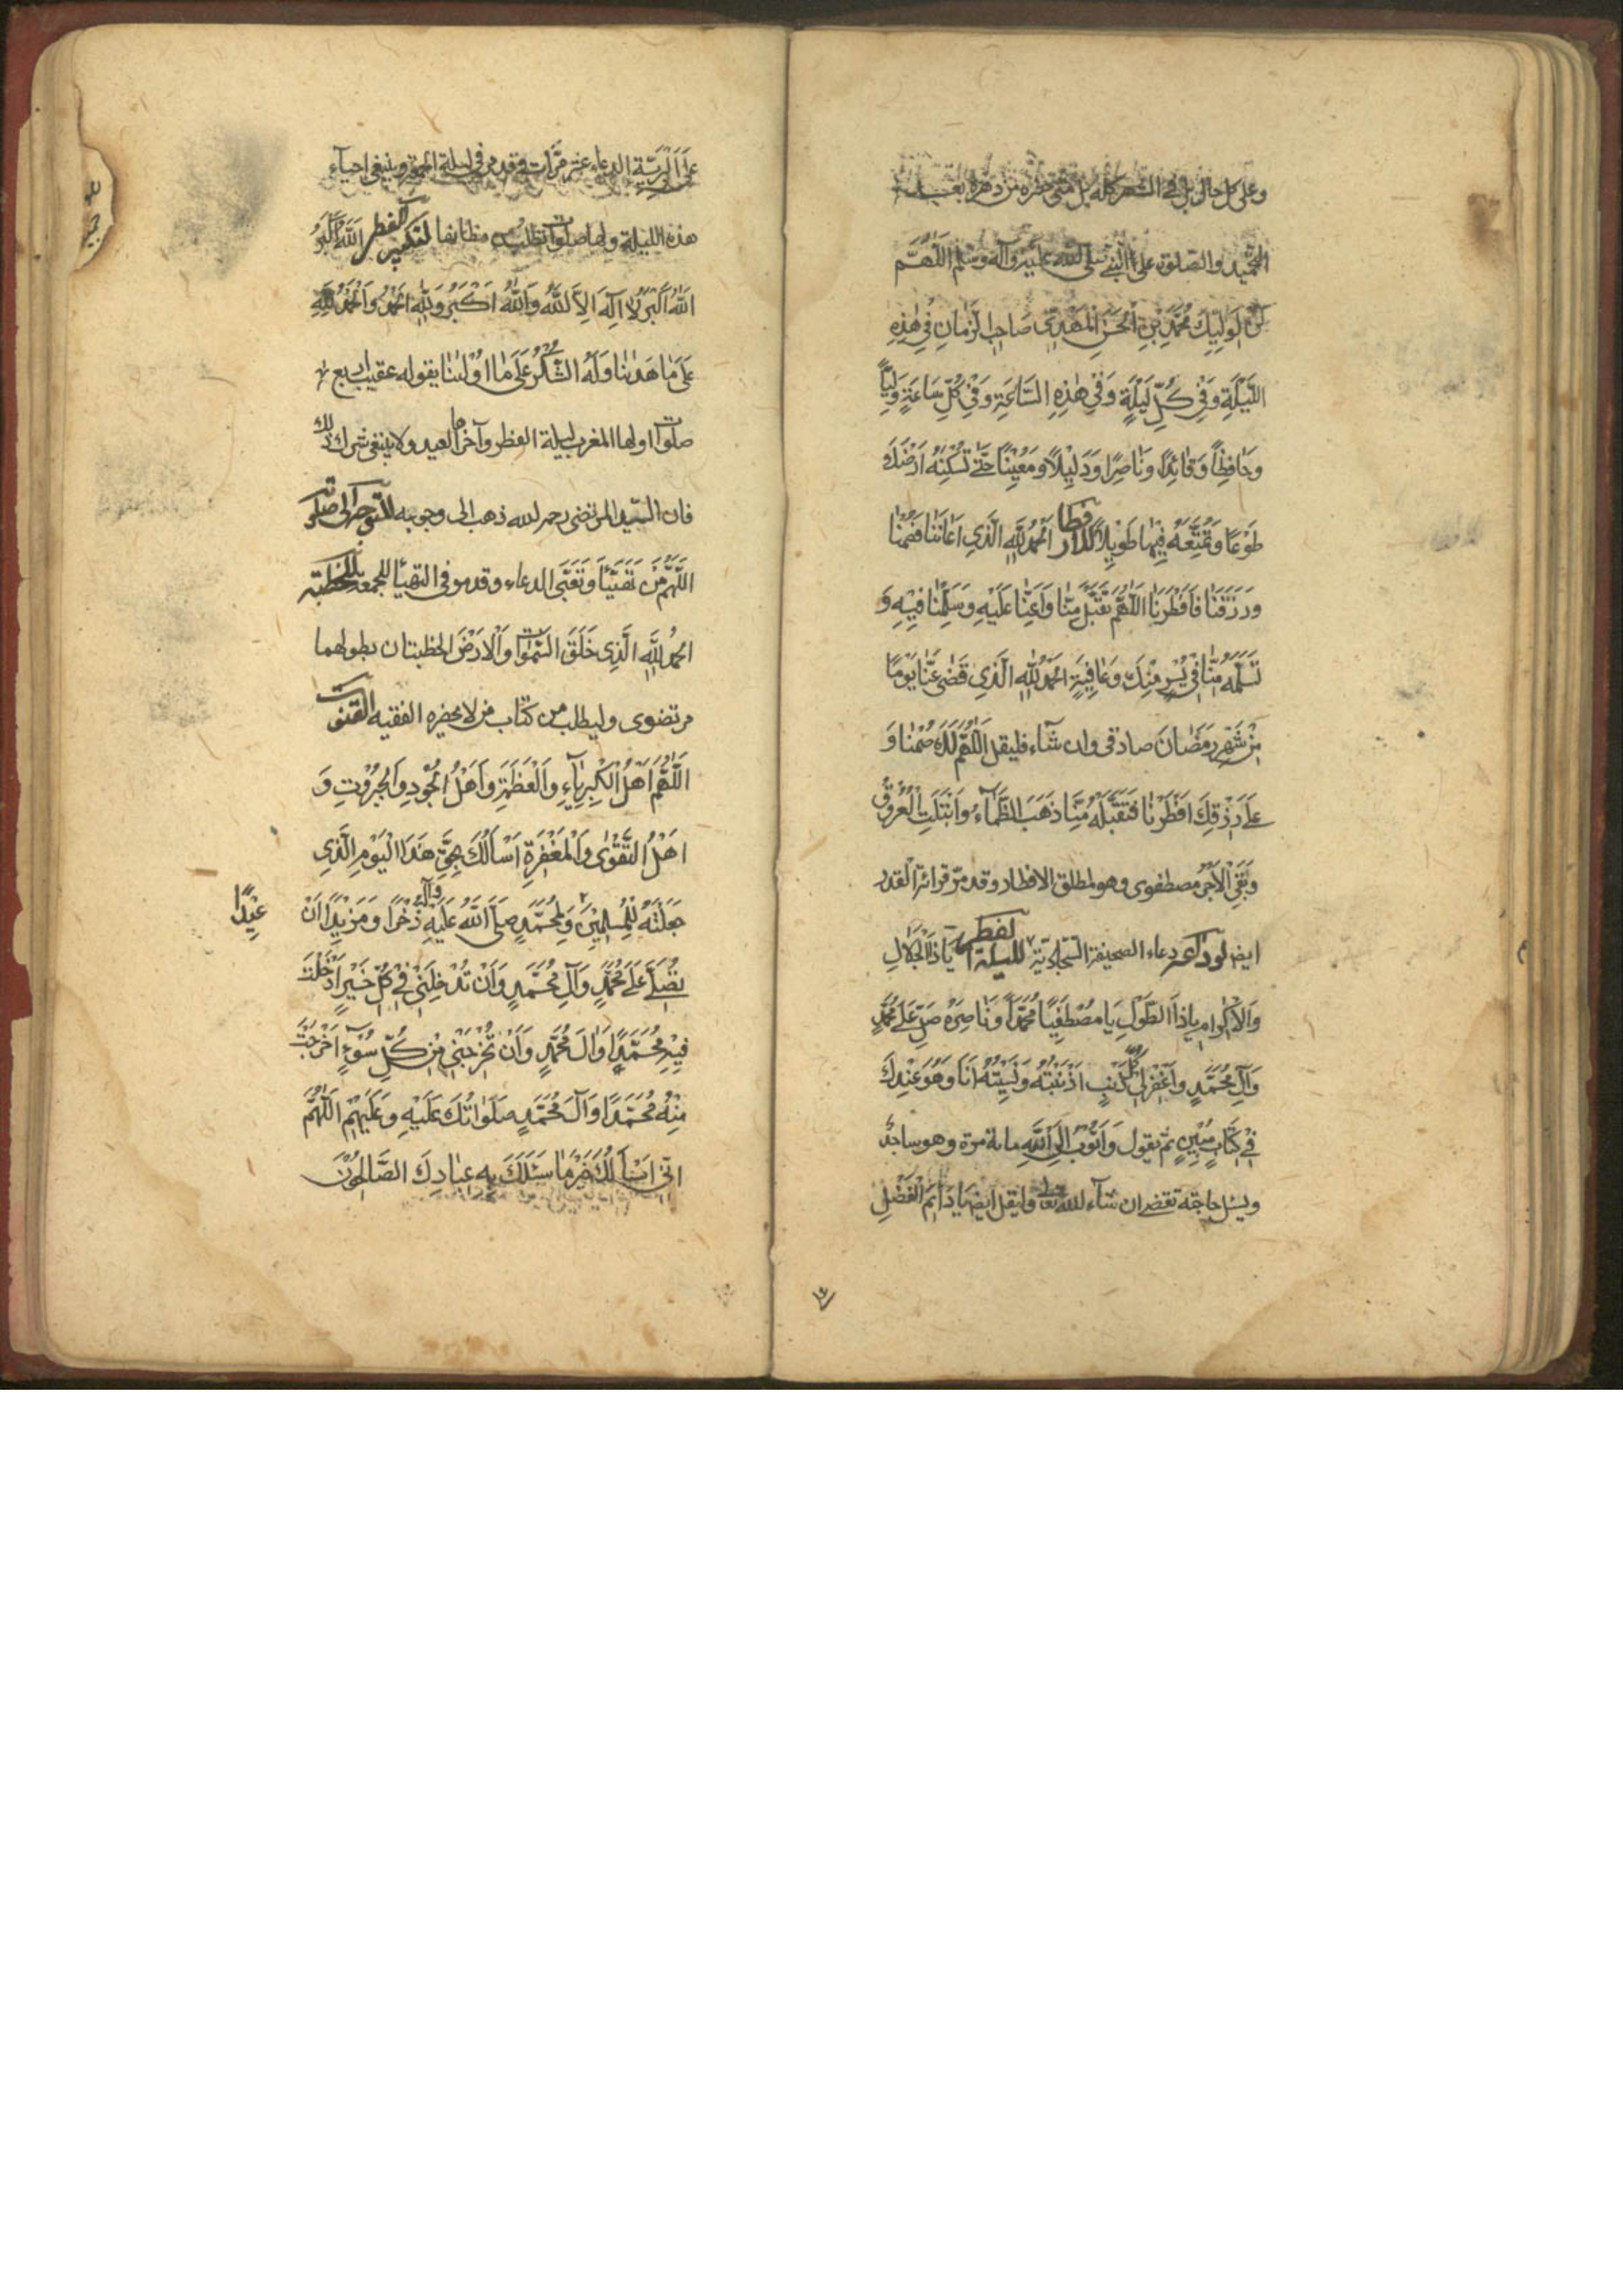 وعلى كل حال بل في الشهر كله بل متى حضره من دهره بعد
التمجيد والصلوة على النبي صلى الله عليه وآله وسلم اللهم
كن لوليك محمد بن الحسن المهدي صاحب الزمان في هذه
الليلة وفي كل ليلة وفي هذه الساعة وفي كل ساعة وليا
وحافظا وقائدا وناصرا ودليلا ومعينا حتى تسكنه ارضك
طوعا وتمتعه فيها طويلا الحمد لله الذي اعاننا فصمنا
ورزقنا فافطرنا اللهم تقبل منا واعنا عليه وسلمنا فيه و
تسلمه منا في يسر منك وعافية الحمد لله الذي قضى عنا يوما
من شهر رمضان صادقي وان شاء فليقل اللهم لك صمنا و
على رزقك افطرنا فتقبله منا ذهب الظماء وابتلت العروق
وبقي الاجر مصطفوي وهو لمطلق الافطار وقد مر قرائة القدر
ايضا دعاء الصحيفة السجادية لليلة الفطر يا ذا الجلال
والاكرام يا ذا الطول يا مصطفيا محمدا وناصره صل على محمد
وآل محمد واغفر لي كل ذنب اذنبته ونسيته انا وهو عندك
في كتاب مبين ثم يقول واتوب الى الله مائة مرة وهو ساجد
ويسئل حاجته تقضى ان شاء الله تعالى وليقل ايضا يا دائم الفضل
على البرية الدعاء عشر مرات وقد مر في ليلة الجمعة وينبغي احياء
هذه الليلة ولها صلوات تطلب من مظانها لتكبير الفطر الله اكبر
الله اكبر لا اله الا الله والله اكبر ولله الحمد والحمد لله
على ما هدينا وله الشكر على ما اولينا يقوله عقيب اربع
صلوات اولها المغرب ليلة الفطر وآخرها العيد ولا ينبغي ترك ذلك
فان السيد المرتضى رحمه الله ذهب الى وجوبه للتوجه الى صلوته
اللهم من تهيأ وتعبى الدعاء وقد مر في التهيأ للجمعة للخطبة
الحمد لله الذي خلق السموات والارض الخطبتان بطولهما
مرتضوي وليطلب من كتاب من لا يحضره الفقيه القنوت
اللهم اهل الكبرياء والعظمة واهل الجود والجبروت و
اهل التقوى والمغفرة اسألك بحق هذا اليوم الذي
جعلته للمسلمين ولمحمد صلى الله عليه وآله ذخرا ومزيدا ان
عيدا
تصلي على محمد وآل محمد وان تدخلني في كل خير ادخلت
فيه محمدا وآل محمد وان تخرجني من كل سوء اخرجت
منه محمدا وآل محمد صلواتك عليه وعليهم اللهم
اني اسألك خير ما سئلك به عبادك الصالحون